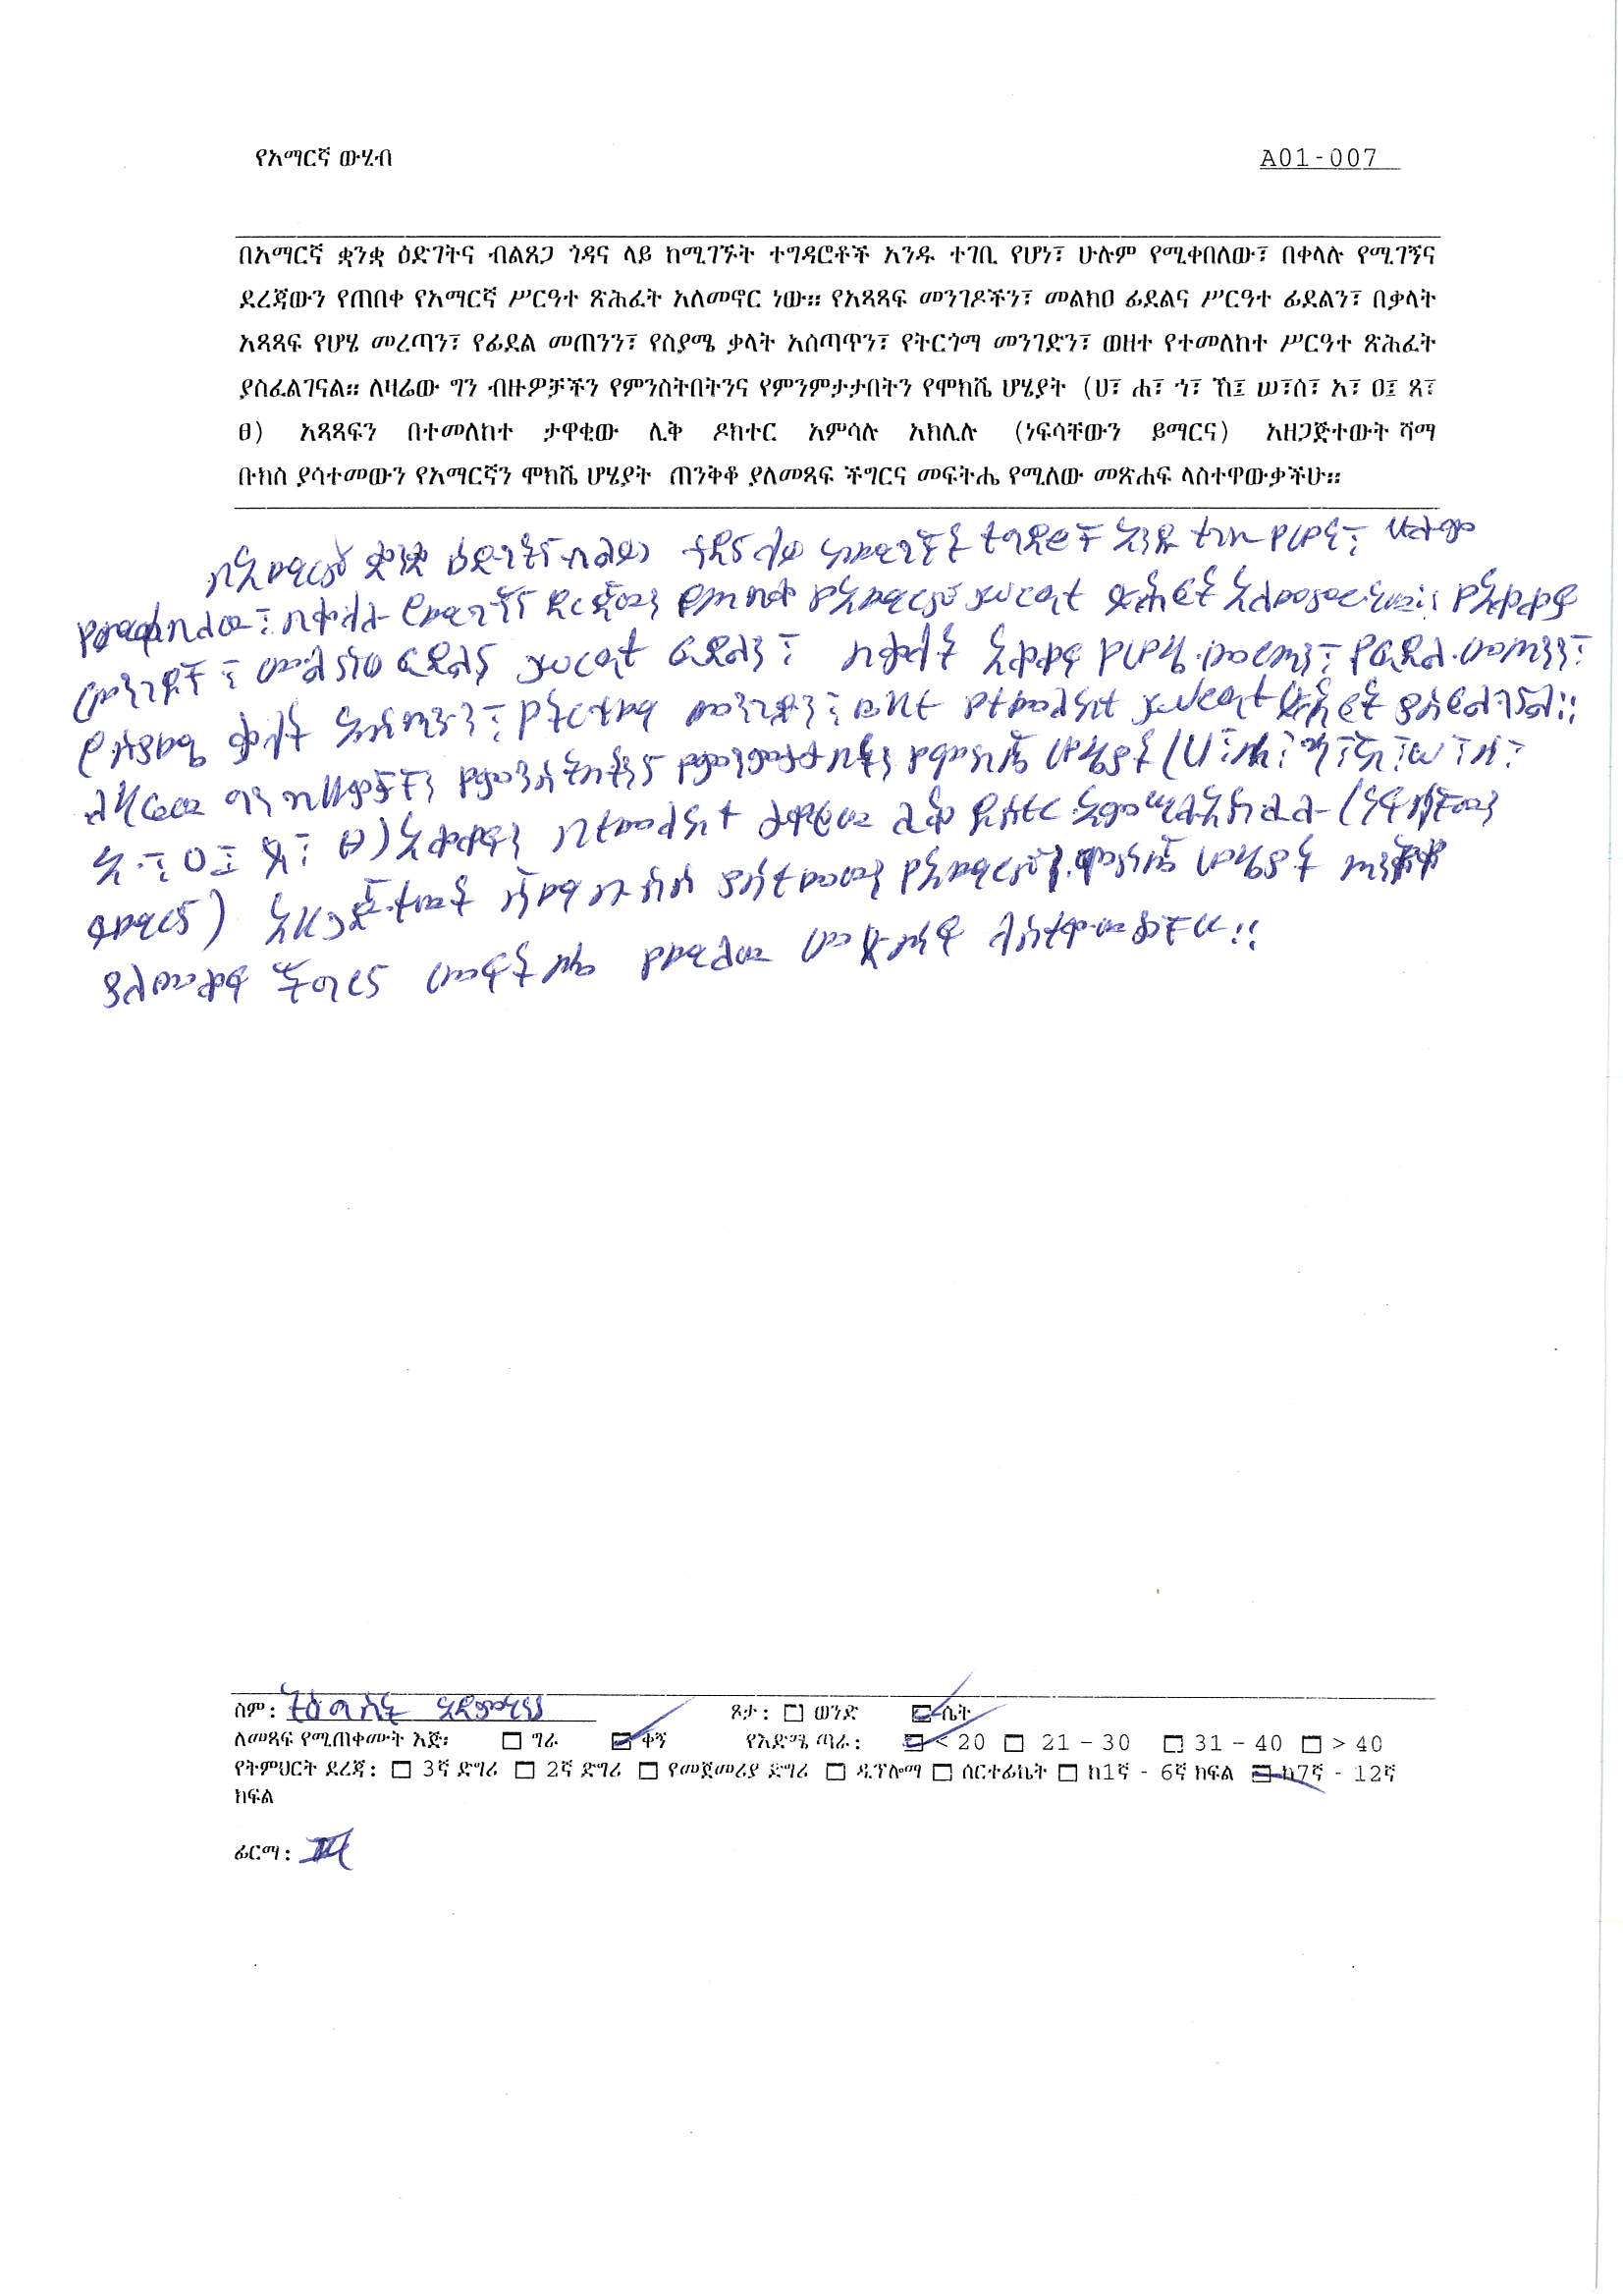 የአማርኛ ውሂብ A01-007
በአማርኛ ቋንቋ ዕድገትና ብልጸጋ ጎዳና ላይ ከሚገኙት ተግዳሮቶች አንዱ ተገቢ የሆነ፣ ሁሉም የሚቀበለው፣ በቀላሉ የሚገኝና
ደረጃውን የጠበቀ የአማርኛ ሥርዓተ ጽሕፈት አለመኖር ነው። የአጻጻፍ መንገዶችን፣ መልክዐ ፊደልና ሥርዓተ ፊደልን፣ በቃላት
አጻጻፍ የሆሄ መረጣን፣ የፊደል መጠንን፣ የስያሜ ቃላት አሰጣጥን፣ የትርጎማ መንገድን፣ ወዘተ የተመለከተ ሥርዓተ ጽሕፈት
ያስፈልገናል። ለዛሬው ግን ብዙዎቻችን የምንስትበትንና የምንምታታበትን የሞክሼ ሆሄያት (ሀ፣ ሐ፣ ኀ፣ ኸ፤ ሠ፣ሰ፣ አ፣ ዐ፤ ጸ፣
ፀ) አጻጻፍን በተመለከተ ታዋቂው ሊቅ ዶክተር አምሳሉ አክሊሉ (ነፍሳቸውን ይማርና) አዘጋጅተውት ሻማ
ቡክስ ያሳተመውን የአማርኛን ሞክሼ ሆሄያት ጠንቅቆ ያለመጻፍ ችግርና መፍትሔ የሚለው መጽሐፍ ላስተዋውቃችሁ።
በአማርኛ ቋንቋ ዕድገትና ከሚገኙት ተግዳሮቶች አንዱ ተገቢ የሆነ፣ ሁሉም
የሚቀበለው፣ በቀላሉ የሚገኝና ደረጃውን የጠበቀ የአማርኛ ሥርዓት ጽሕፈት አለመኖር ነው። የአጻጻፍ
መንገዶች፣ መልክዐ ፊደልና ሥርዓት ፊደልን፣ በቃላት አጻጻፍ የሆሄ መረጣን፣ የፊደል መጠንን፣
የስያሜ ቃላት አሰጣጥን፣ የትርጎማ መንገድን፣ ወዘተ የተመለከተ ሥርዓት ጽሕፈት ያስፈልገናል።
ለዛሬው ግን ብዙዎቻችን የምንስትበትንና የምንምታታበትን የሞክሼ ሆሄያት (ሀ፣ ሐ፣ ኀ፣ ኸ፣ ሠ፣ ሰ፣
አ፣ ዐ፤ ጸ፣ ፀ) አጻጻፍን በተመለከተ ታዋቂው ሊቅ ዶክተር አምሳሉ አክሊሉ (ነፍሳቸውን
ይማርና) አዘጋጅተውት ሻማ ቡክስ ያሳተመውን የአማርኛን ሞክሼ ሆሄያት ጠንቅቆ
ያለመጻፍ ችግርና መፍትሔ የሚለው መጽሐፍ ላስተዋውቃችሁ።
ስም: ትዕግስት ጾታ: ወንድ ሴት
ለመጻፍ የሚጠቀሙት እጅ፡ ግራ ቀኝ የእድሜ ጣራ: < 20 21 – 30 31 – 40 > 40
የትምህርት ደረጃ: 3ኛ ድግሪ 2ኛ ድግሪ የመጀመሪያ ድግሪ ዲፕሎማ ሰርተፊኬት ከ1ኛ - 6ኛ ክፍል ከ7ኛ - 12ኛ
ክፍል
ፊርማ: